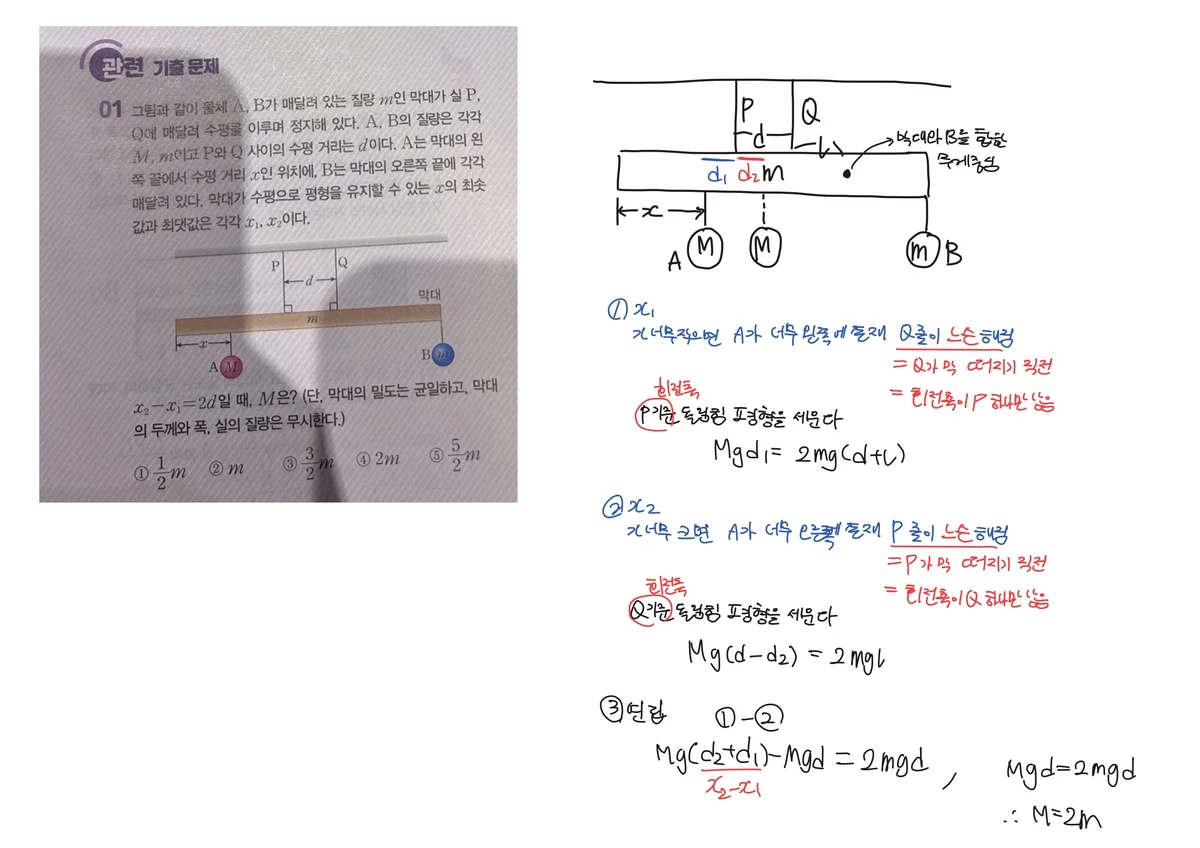 관련 기출 문제
01 그림과 같이 물체 A, B가 매달려 있는 질량 m인 막대가 실 P,
Q에 매달려 수평을 이루며 정지해 있다. A, B의 질량은 각각
M, m이고 P와 Q 사이의 수평 거리는 d이다. A는 막대의 왼
쪽 끝에서 수평 거리 x인 위치에, B는 막대의 오른쪽 끝에 각각
매달려 있다. 막대가 수평으로 평형을 유지할 수 있는 x의 최솟
값과 최댓값은 각각 x₁, x₂이다.
P
Q
d
막대
m
x
A M
B m
x₂-x₁=2d일 때, M은? (단, 막대의 밀도는 균일하고, 막대
의 두께와 폭, 실의 질량은 무시한다.)
① 1/2 m ② m ③ 3/2 m ④ 2m ⑤ 5/2 m
P
Q
d
l
막대와 B을 합한
무게중심
d₁ d₂ m
x
A M
M
m B
① x₁
x 너무 작으면 A가 너무 왼쪽에 존재 Q줄이 느슨해짐
= Q가 막 떠지기 직전
= 회전축이 P 하나만 남음
회전축
P기준 돌림힘 평형을 세운다
Mgd₁ = 2mg(d+l)
② x₂
x 너무 크면 A가 너무 오른쪽에 존재 P줄이 느슨해짐
= P가 막 떠지기 직전
= 회전축이 Q 하나만 남음
회전축
Q기준 돌림힘 평형을 세운다
Mg(d-d₂) = 2mgl
③ 연립 ①-②
Mg(d₂+d₁)-Mgd = 2mgd , Mgd=2mgd
x₂-x₁
∴ M=2m